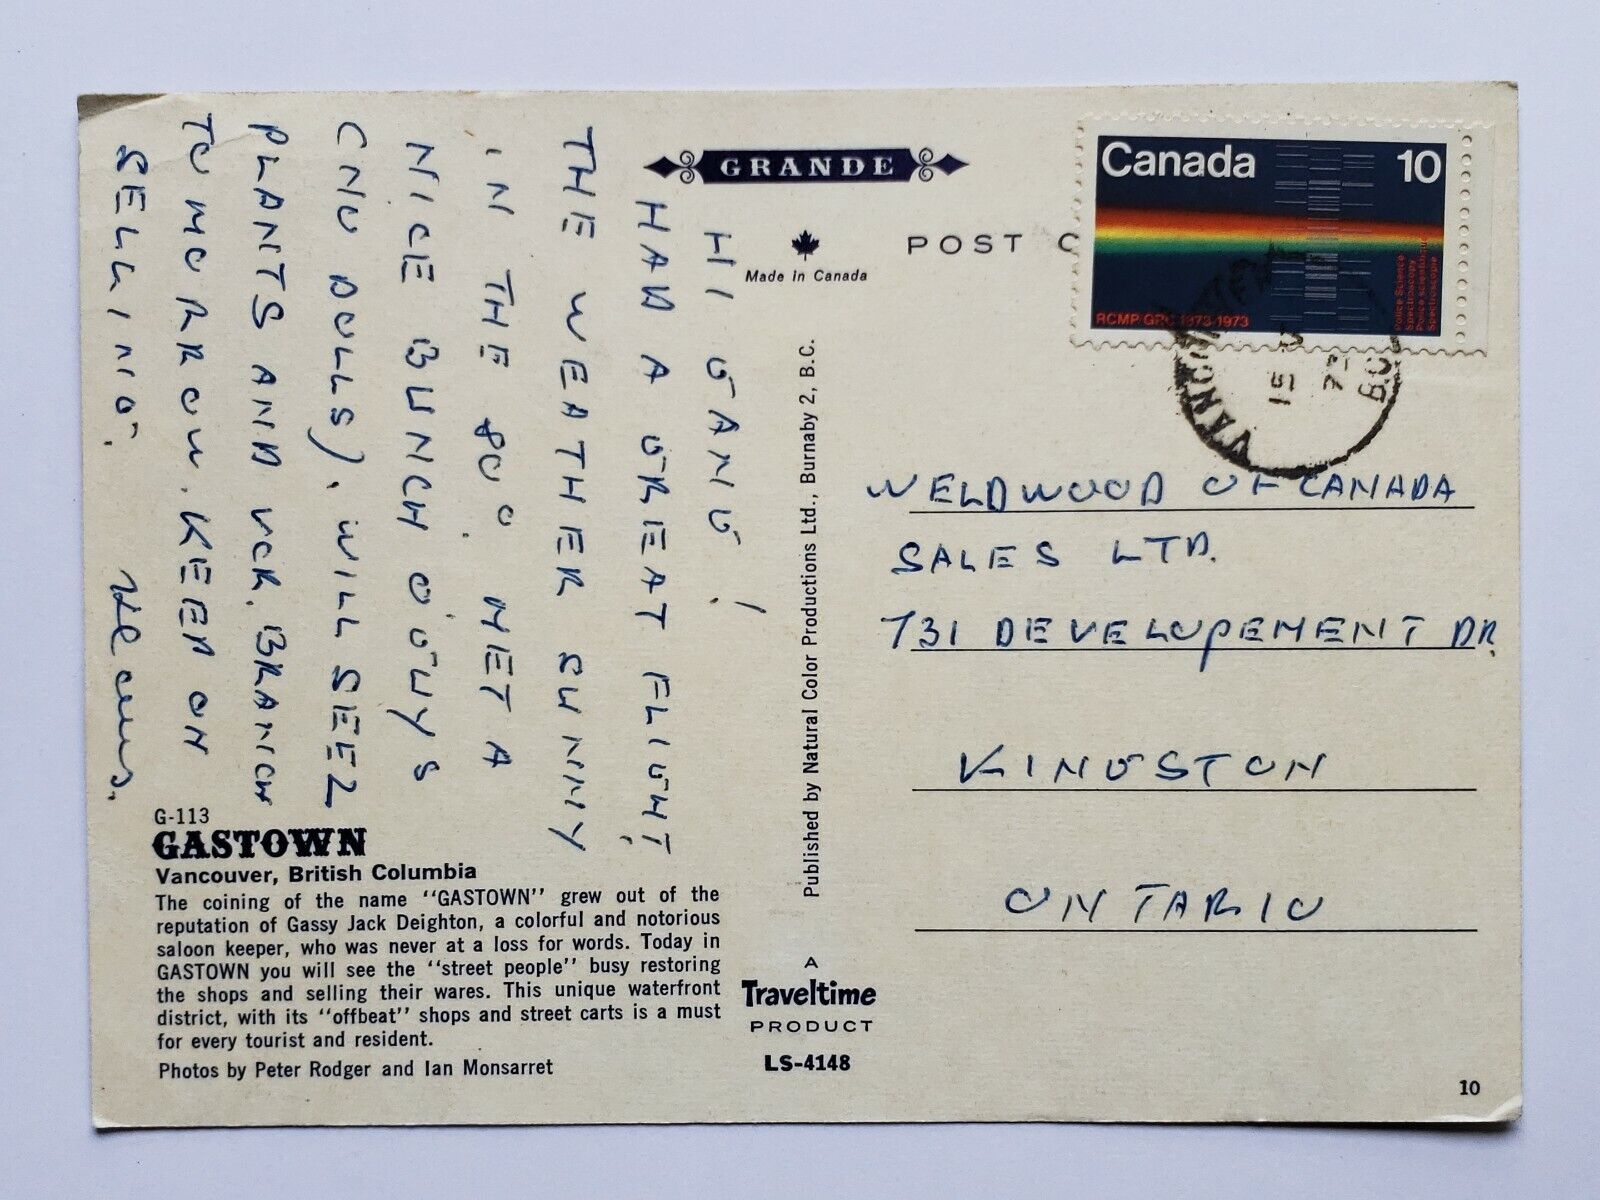 GRANDE
Made in Canada
POST C
Canada 10
RCMP GRC 1873-1973
Police Science
Spectroscopy
Police scientifique
Spectroscopie
15
B.C.
HI GANG!
HAD A GREAT FLIGHT,
THE WEATHER SUNNY
IN THE 80°. MET A
NICE BUNCH O'GUYS
(NO DOLLS). WILL SEE 2
PLANTS AND VCR. BRANCH
TOMORROW. KEEP ON
SELLING.
WELDWOOD OF CANADA
SALES LTD.
731 DEVELOPEMENT DR.
KINGSTON
ONTARIO
Published by Natural Color Productions Ltd., Burnaby 2, B.C.
G-113
GASTOWN
Vancouver, British Columbia
The coining of the name "GASTOWN" grew out of the
reputation of Gassy Jack Deighton, a colorful and notorious
saloon keeper, who was never at a loss for words. Today in
GASTOWN you will see the "street people" busy restoring
the shops and selling their wares. This unique waterfront
district, with its "offbeat" shops and street carts is a must
for every tourist and resident.
Photos by Peter Rodger and Ian Monsarret
A
Traveltime
PRODUCT
LS-4148
10